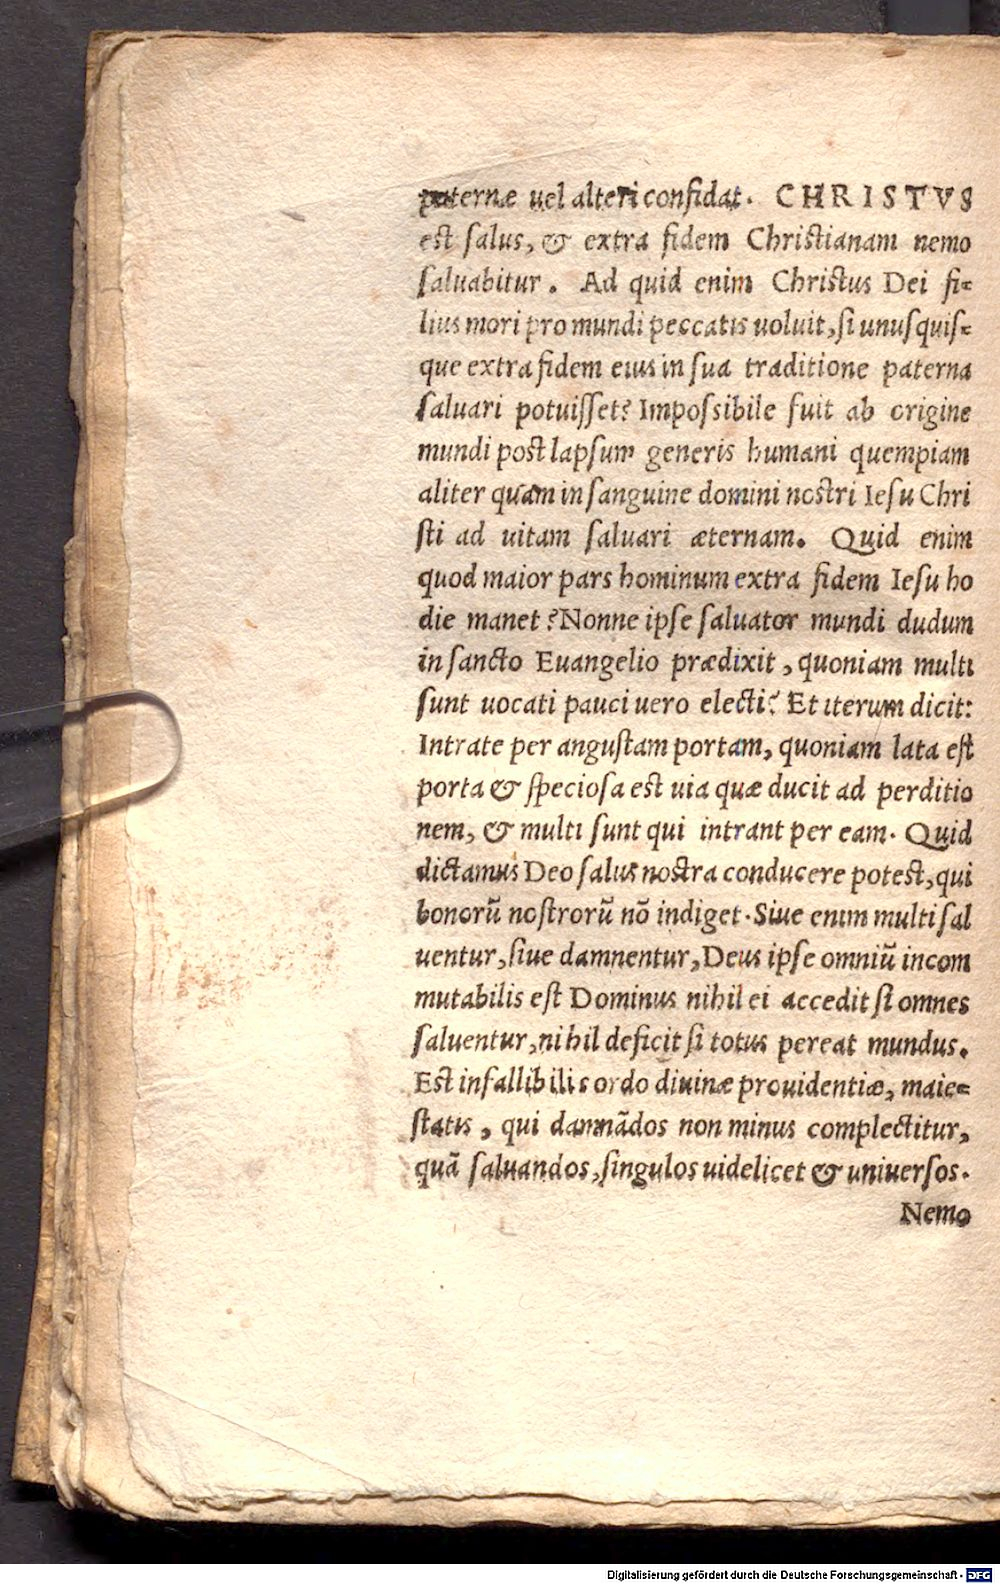 paternæ uel alteri confidat. CHRISTVS
est salus, & extra fidem Christianam nemo
saluabitur. Ad quid enim Christus Dei fi-
lius mori pro mundi peccatis uoluit, si unusquis-
que extra fidem eius in sua traditione paterna
saluari potuisset? Impossibile fuit ab origine
mundi post lapsum generis humani quempiam
aliter quàm in sanguine domini nostri Iesu Chri
sti ad uitam saluari æternam. Quid enim
quod maior pars hominum extra fidem Iesu ho
die manet? Nonne ipse saluator mundi dudum
in sancto Euangelio prædixit, quoniam multi
sunt uocati pauci uero electi? Et iterum dicit:
Intrate per angustam portam, quoniam lata est
porta & speciosa est uia quæ ducit ad perditio
nem, & multi sunt qui intrant per eam. Quid
dictamus Deo salus nostra conducere potest, qui
bonorũ nostrorũ nõ indiget. Siue enim multi sal
uentur, siue damnentur, Deus ipse omniũ incom
mutabilis est Dominus nihil ei accedit si omnes
saluentur, nihil deficit si totus pereat mundus.
Est infallibilis ordo diuinæ prouidentiæ, maie-
statis, qui damnãdos non minus complectitur,
quã saluandos, singulos uidelicet & uniuersos.
Nemo
Digitalisierung gefördert durch die Deutsche Forschungsgemeinschaft - DFG